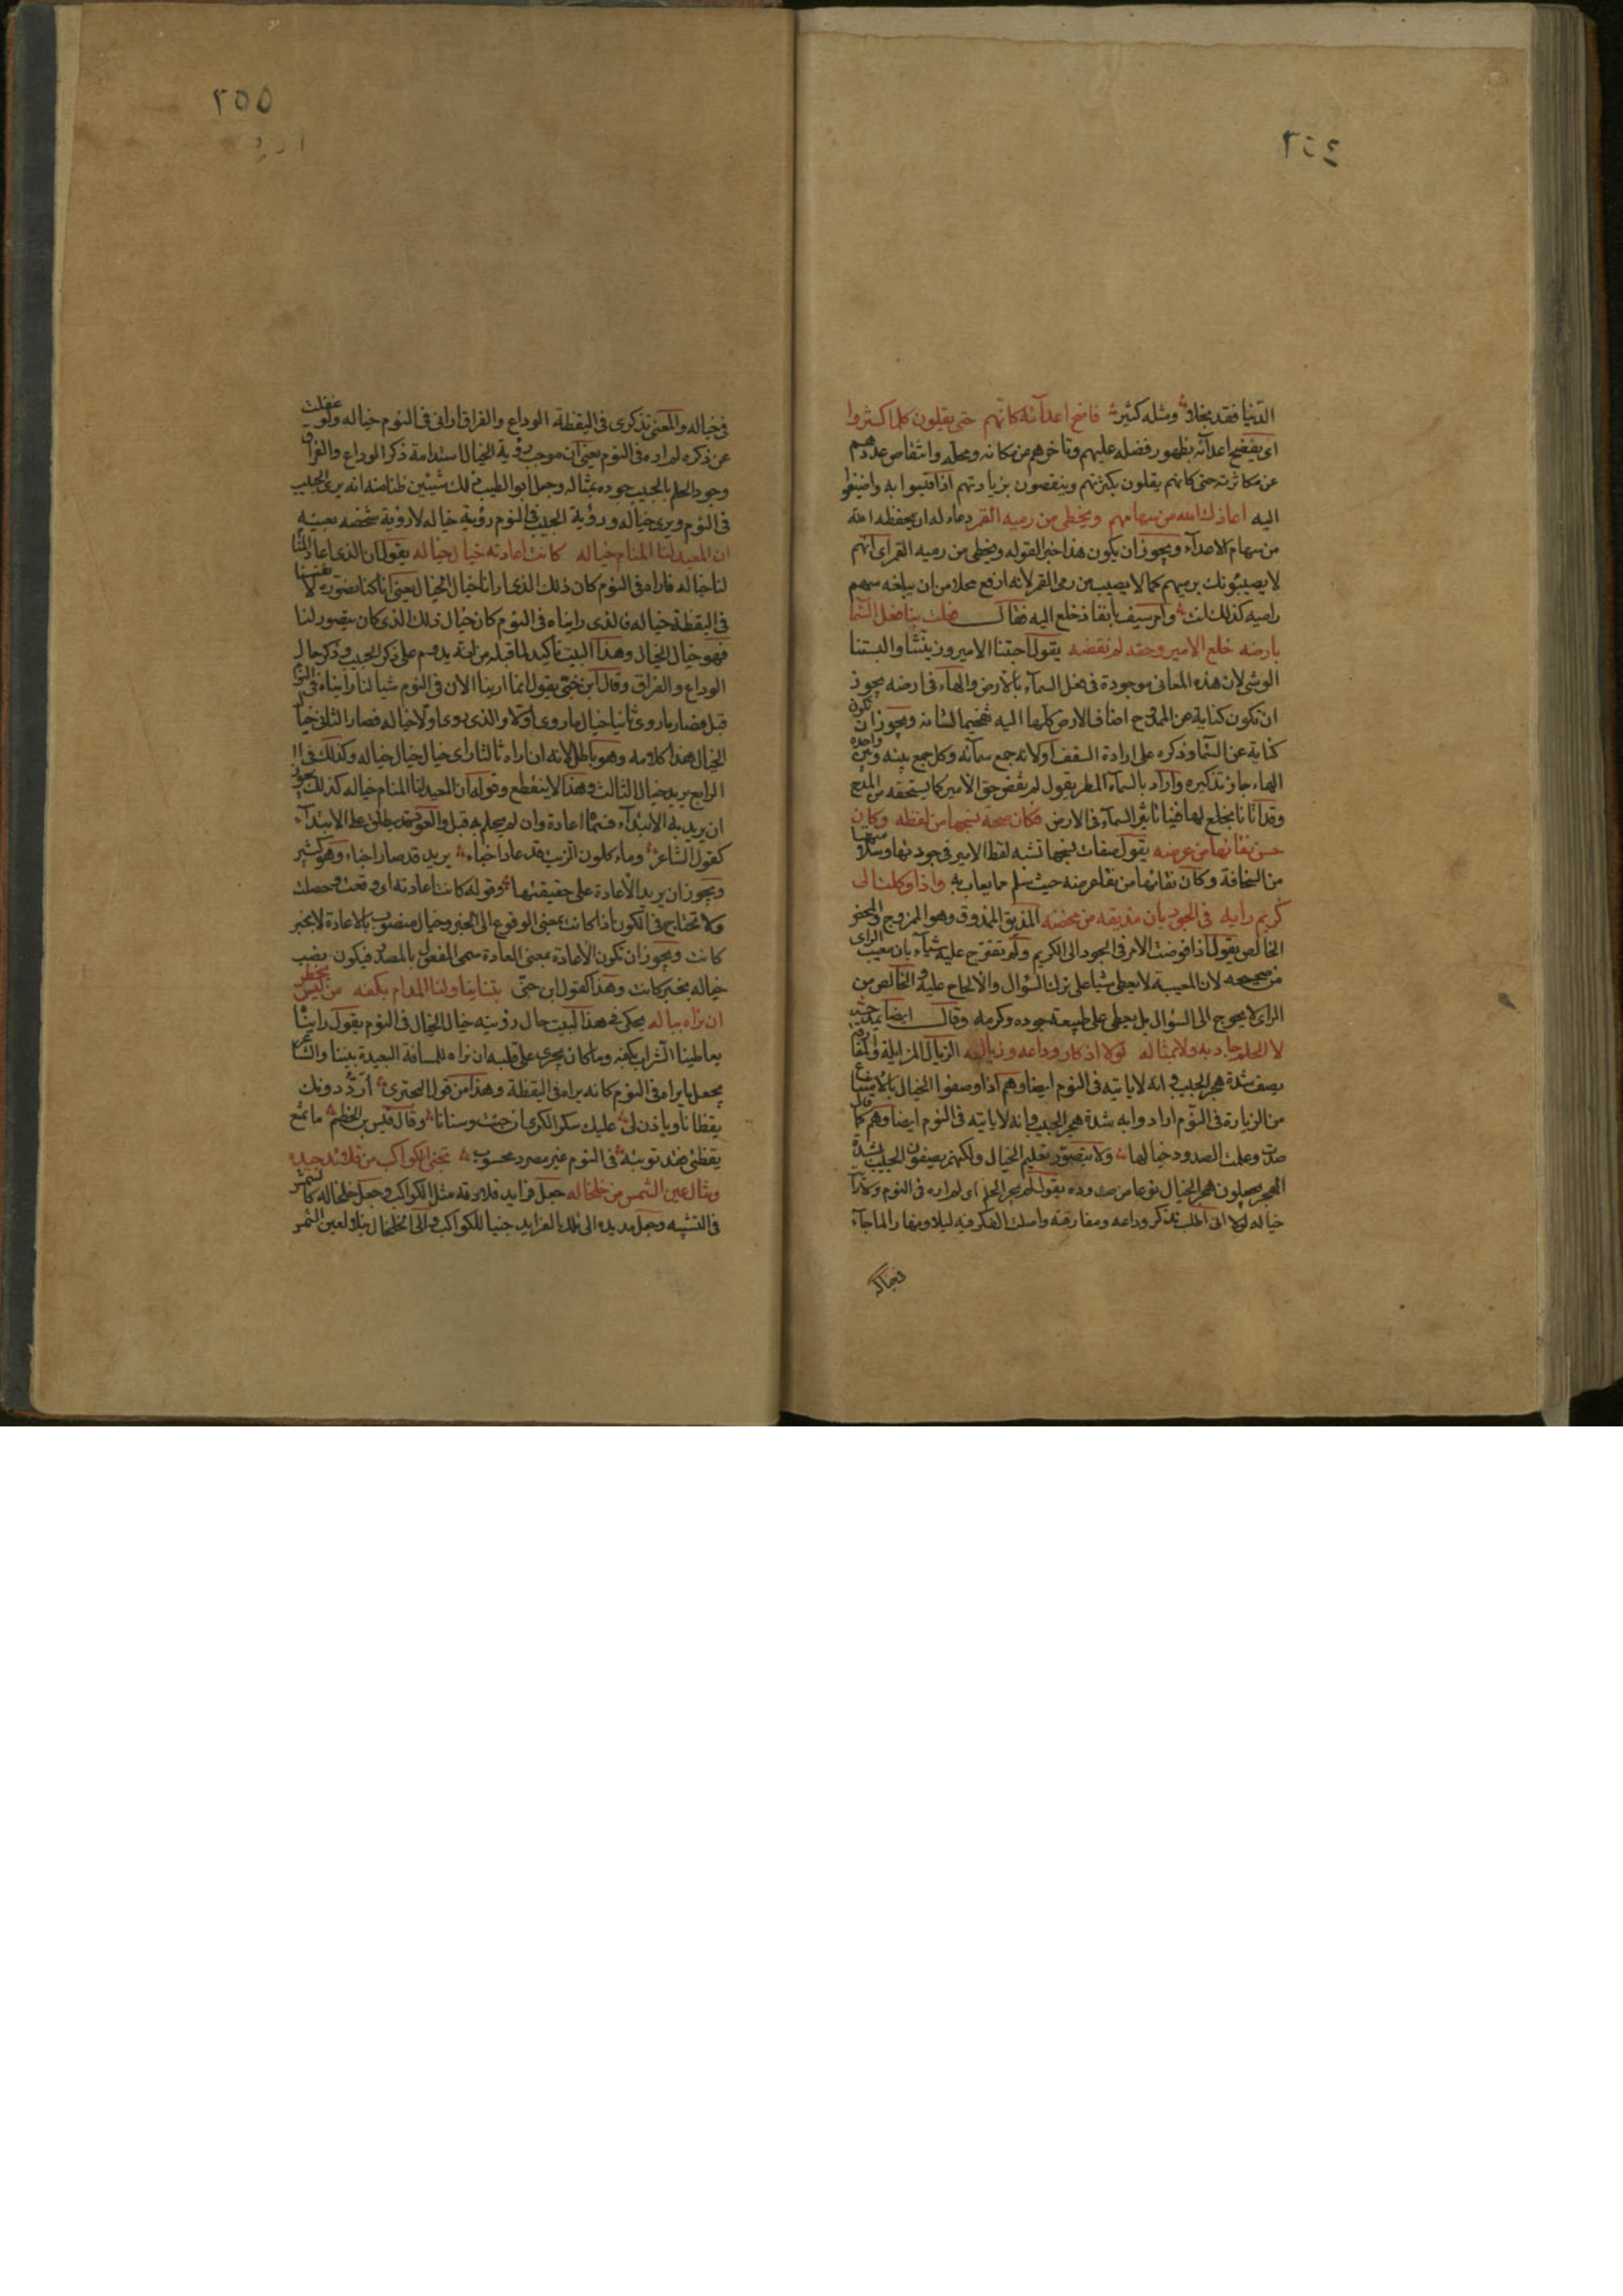 ٢٥٤
الدنيا فقد بخلاق ومثله كثير فاضح اعدآئه كانهم حتى يقلون كلما كثروا
اى يفضح اعدآئه بظهور فضله عليهم وتاخرهم عن مكانه ومحله وانتقاص عددهم
عن مكاثرته حتى كانهم يقلون بكثرتهم وينقصون بزيادتهم اذا قيسوا به واضيفوا
اليه اعاذك الله من سهامهم ويخطى من رميه القمر دعاء له ان يحفظه الله
من سهام الاعدآء ويجوز ان يكون هذا خبرا لقوله ويخطى من رميه القمر اى انهم
لا يصيبونك برميهم كما لا يصيب من رمى القمر لانه ارفع محلا من ان يبلغه سهم
راميه كذلك انت وامر سيف بانفاذ خلع اليه فقال فعلت بنا فعل السما
بارضه خلع الامير وحقه لم نقضه يقول احيتنا الامير وزينتنا والبستنا
الوشى لان هذه المعانى موجودة فى فعل السمآء بالارض والهآء فى ارضه يجوز
ان تكون كناية عن الممدوح اضاف الارض كلها اليه تفخيما لشانه ويجوز ان تكون
كناية عن السما وذكره على ارادة السقف او لانه جمع سمآئة وكل جمع بينه وبين واحده
الهاء جاز تذكيره واراد بالسمآء المطر يقول لم نقض حق الامير كما يستحقه من المدح
وقد اتانا بخلع لها فينا تاثير السمآء فى الارض فكان صحة نسجها من لفظه وكان
حسن نقائها من عرضه يقول صفات نسجها تشبه لفظ الامير فى جودتها وسلامتها
من السخافة وكان نقاءها من نقاء عرضه حيث سلم مما يعاب به واذا وكلت الى
كريم رايه فى الجود بان مذيقه من محضه المذيق الممذوق وهو الممزوج والمحض
الخالص يقول اذا فوضت الامر فى الجود الى الكريم ولم تقترح عليه شيآء بان معيب الراى
من صحيحه لان المعيبة لا يعطى شيا على ترك السؤال والالحاح عليه والخالص من
الراى لا يحوج الى السؤال بل يعطى على طبيعة جوده وكرمه وقال ايضا يمدحه
لا الحلم جاد به ولا بمثاله لولا اذكار وداعه وزياله الزيال المزايلة والمفارقة
يصف شدة هجر الحبيب فى انه لا ياتيه فى النوم ايضا وهم اذا وصفوا الخيال بالامتناع
من الزيارة فى النوم ارادوا به شدة هجر الحبيب وانه لا ياتيه فى النوم ايضا وهم كما قال
صدت وعلمت الصدود خيالها ولا يتصور تعليم الخيال ولكنهم يصفون الحبيب بشدة
الهجر ويجعلون هجر الخيال نوعا من صدوده يقول لم يجر الحلم اى لم اره فى النوم ولا ارى
خياله لولا انى اطلت تذكر وداعه ومفارقته واصلت الفكر فيه ليلا ونهارا لما جآء
فخياله
٢٥٥
فى خياله والمعنى تذكرى فى اليقظة الوداع والفراق ارانى فى النوم خياله ولو غفلت
عن ذكره لم اره فى النوم يعنى ان موجب رؤية الخيال استدامة ذكر الوداع والفراق
وجود الحلم بالحبيب جوده بمثاله وجعل ابو الطيب ذلك شيئين ظنا منه انه يرى الحبيب
فى النوم ويرى خياله ورؤية الحبيب فى النوم رؤية خياله لا رؤية شخصه بعينه
ان المعيد لنا المنام خياله كانت اعادته خيال خياله يقول ان الذى اعاد المنام
لنا خياله فاراه فى النوم كان ذلك الذى ارانا خيال الخيال يعنى انا كنا نصوره لانفسنا
فى اليقظة خياله فالذى رايناه فى النوم كان خيال ذلك الذى كان يتصور لنا
فهو خيال الخيال وهذا البيت تاكيد لما قبله من انه يدوم على ذكر الحبيب وذكر حال
الوداع والفراق وقال ابن جنى يقول انما ارينا الان فى النوم شيا لنا رايناه فى النوم
قبل فصار ما روى ثانيا خيال ما روى اولا والذى روى اولا خياله فصار الثانى خيال
الخيال هذا كلامه وهو باطل لانه ان راه ثالثا راى خيال خيال خياله وكذلك فى
الرابع يريد خيال الثالث وهذا لا ينقطع وقوله ان المعيد لنا المنام خياله كذلك يجوز
ان يريد به الابتدآء فسماها اعادة وان لم يحلم به قبل والعود قد يطلق على الابتدآء
كقول الشاعر ومآء كلون الزيت قد عاد اجناء يريد قد صار اجناء وهو كثير
ويجوز ان يريد الاعادة على حقيقتها وقوله كانت اعادته اى وقعت وحصلت
ولا تحتاج فى الكون اذا كانت بمعنى الوقوع الى الخبر وخيال منصوب بالاعادة لا بخبر
كانت ويجوز ان تكون الاعادة بمعنى المعادة سمى المفعول بالمصدر فيكون نصب
خياله بخبر كانت وهذا كقول ابن جنى بتنا يناولنا المدام بكفه من ليس يخطر
ان نراه بباله يحكى فى هذا البيت حال رؤيته خيال الخيال فى النوم يقول راينا
يعاطينا الشراب بكفه وما كان يجرى على قلبه ان نراه للمسافة البعيدة بيننا والشاعر
يجعل ما يراه فى النوم كانه يراه فى اليقظة وهذا من قول البحترى أردّ دونك
يقظانا وياذن لى عليك سكر الكرى ان جئت وسنانا وقال قيس بن الخطيم ما تمنع
يقظى فقد توتينه فى النوم غير مصرد محسوب نجنى الكواكب من قلائد جيده
وننال عين الشمس من خلخاله جعل فرايد قلادته مثل الكواكب وجعل خلخاله كالشمس
فى التشبيه وجعل مد يده الى تلك الفرايد جنيا للكواكب والى الخلخال نيلا لعين الشمس